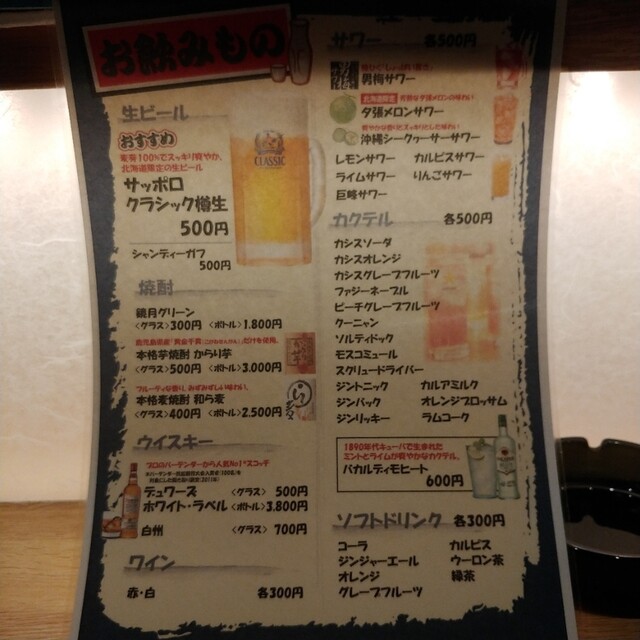 お飲みもの
生ビール
おすすめ
麦芽100%でスッキリ爽やか、
北海道限定の生ビール
サッポロ
クラシック樽生
500円
CLASSIC
シャンディーガフ
500円
焼酎
鏡月グリーン
<グラス>300円 <ボトル>1.800円
本格芋焼酎 からり芋
<グラス>500円 <ボトル>3.000円
フルーティな香り、みずみずしい味わい。
本格麦焼酎 和ら麦
<グラス>400円 <ボトル>2.500円
ウイスキー
プロのバーテンダーから人気No1*スコッチ
デュワーズ <グラス> 500円
ホワイト・ラベル <ボトル>3.800円
白州 <グラス> 700円
ワイン
赤・白 各300円
サワー 各500円
男梅サワー
北海道限定 芳醇な夕張メロンの味わい
夕張メロンサワー
爽やかな香りとスッキリとした味わい
沖縄シークヮーサーサワー
レモンサワー カルピスサワー
ライムサワー りんごサワー
巨峰サワー
カクテル 各500円
カシスソーダ
カシスオレンジ
カシスグレープフルーツ
ファジーネーブル
ピーチグレープフルーツ
クーニャン
ソルティドック
モスコミュール
スクリュードライバー
ジントニック カルアミルク
ジンバック オレンジブロッサム
ジンリッキー ラムコーク
1890年代キューバで生まれた
ミントとライムが爽やかなカクテル。
バカルディモヒート
600円
ソフトドリンク 各300円
コーラ カルピス
ジンジャーエール ウーロン茶
オレンジ 緑茶
グレープフルーツ